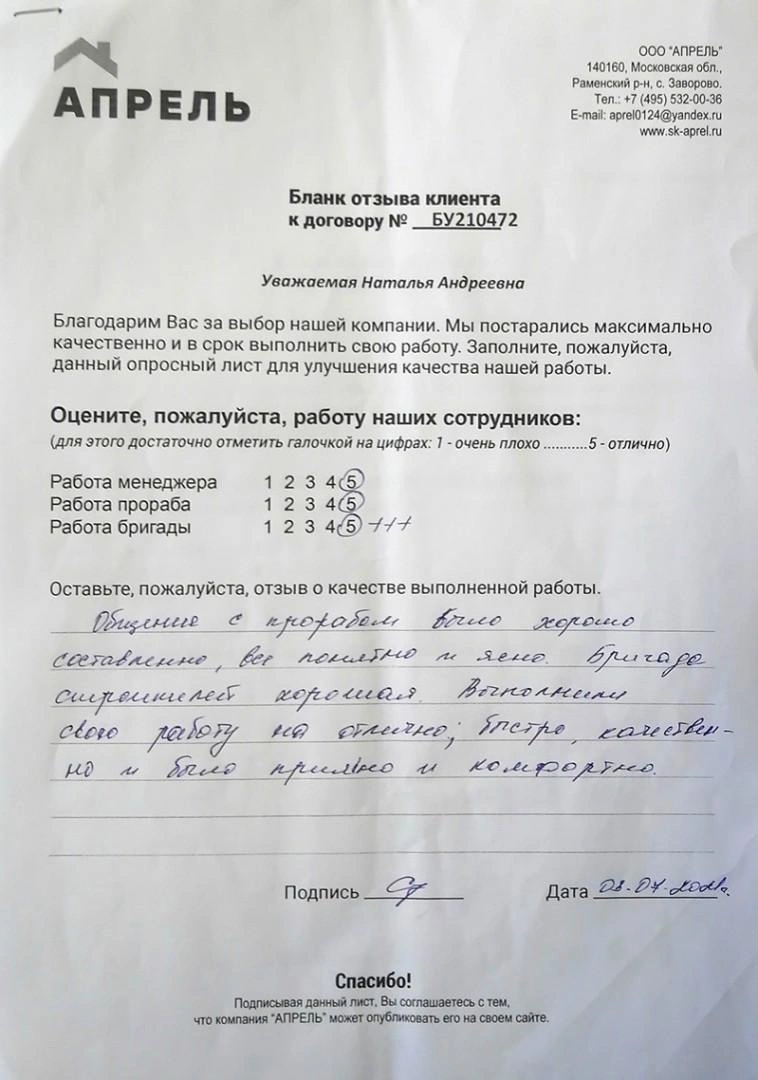 АПРЕЛЬ
ООО "АПРЕЛЬ"
140160, Московская обл.,
Раменский р-н, с. Заворово.
Тел.: +7 (495) 532-00-36
E-mail: aprel0124@yandex.ru
www.sk-aprel.ru
Бланк отзыва клиента
к договору № БУ210472
Уважаемая Наталья Андреевна
Благодарим Вас за выбор нашей компании. Мы постарались максимально
качественно и в срок выполнить свою работу. Заполните, пожалуйста,
данный опросный лист для улучшения качества нашей работы.
Оцените, пожалуйста, работу наших сотрудников:
(для этого достаточно отметить галочкой на цифрах: 1 - очень плохо ...........5 - отлично)
Работа менеджера 1 2 3 4 5
Работа прораба 1 2 3 4 5
Работа бригады 1 2 3 4 5 +++
Оставьте, пожалуйста, отзыв о качестве выполненной работы.
Общение с прорабом было хорошо
составленно, все понятно и ясно. Бригада
строителей хорошая. Выполнили
свою работу на отлично; быстро, качествен-
но и было приятно и комфортно.
Подпись Дата 08.07.2021г.
Спасибо!
Подписывая данный лист, Вы соглашаетесь с тем,
что компания "АПРЕЛЬ" может опубликовать его на своем сайте.